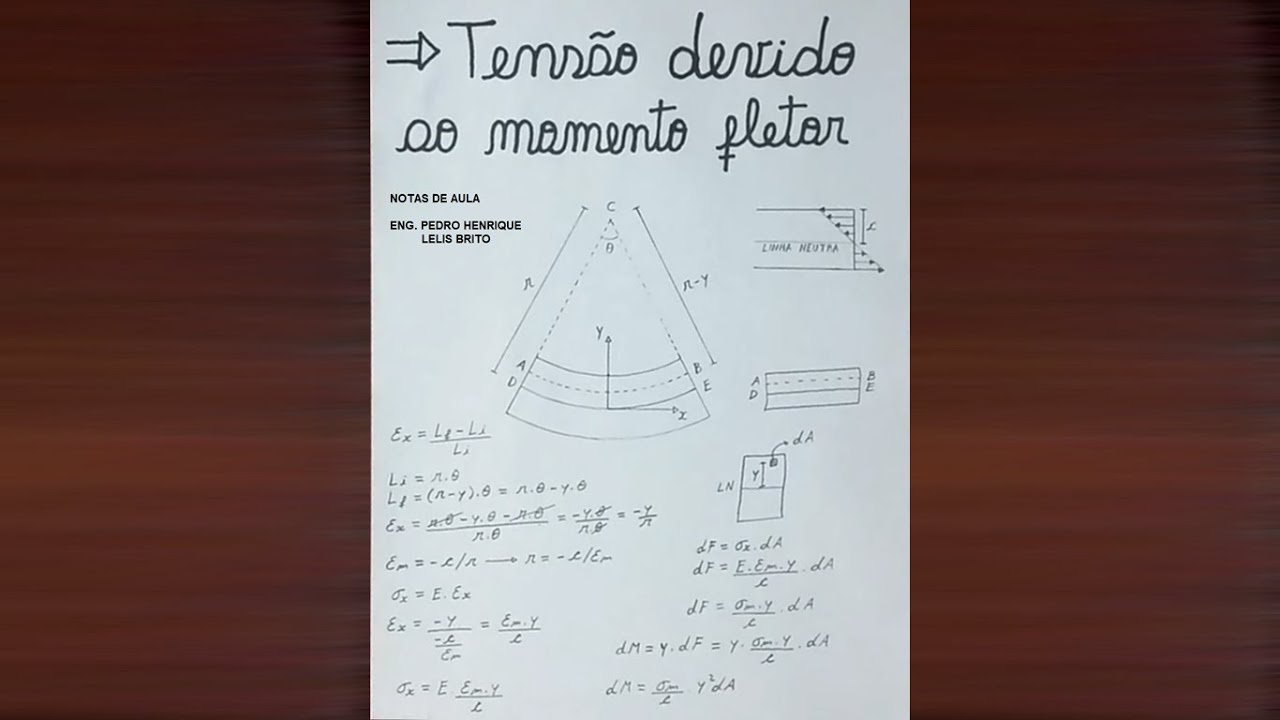 ⇒ Tensão devido
ao momento fletor
NOTAS DE AULA
ENG. PEDRO HENRIQUE
LELIS BRITO
C
θ
r
r-y
y
A
B
D
E
x
c
LINHA NEUTRA
A
B
D
E
dA
y
LN
εx = Lf - Li / Li
Li = r.θ
Lf = (r-y).θ = r.θ - y.θ
εx = r.θ - y.θ - r.θ / r.θ = -y.θ / r.θ = -y / r
εm = -c/r → r = -c/εm
σx = E.εx
εx = -y / (-c / εm) = εm.y / c
σx = E.εm.y / c
dF = σx.dA
dF = E.εm.y / c . dA
dF = σm.y / c . dA
dM = y.dF = y.σm.y / c . dA
dM = σm / c y²dA